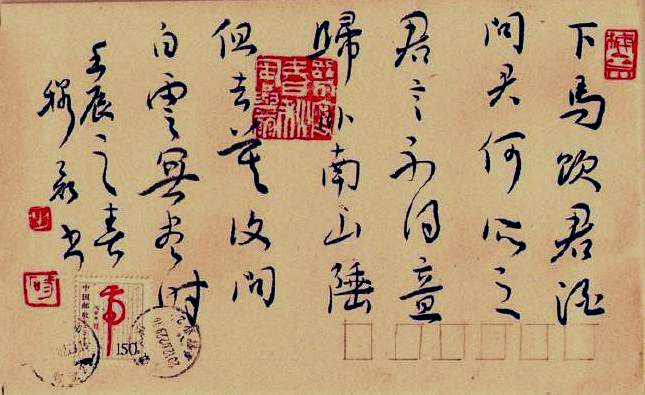 下馬飲君酒
問君何所之
君言不得意
歸卧南山陲
但去莫復問
白雲無盡时
壬辰之春
書
中国邮政
150